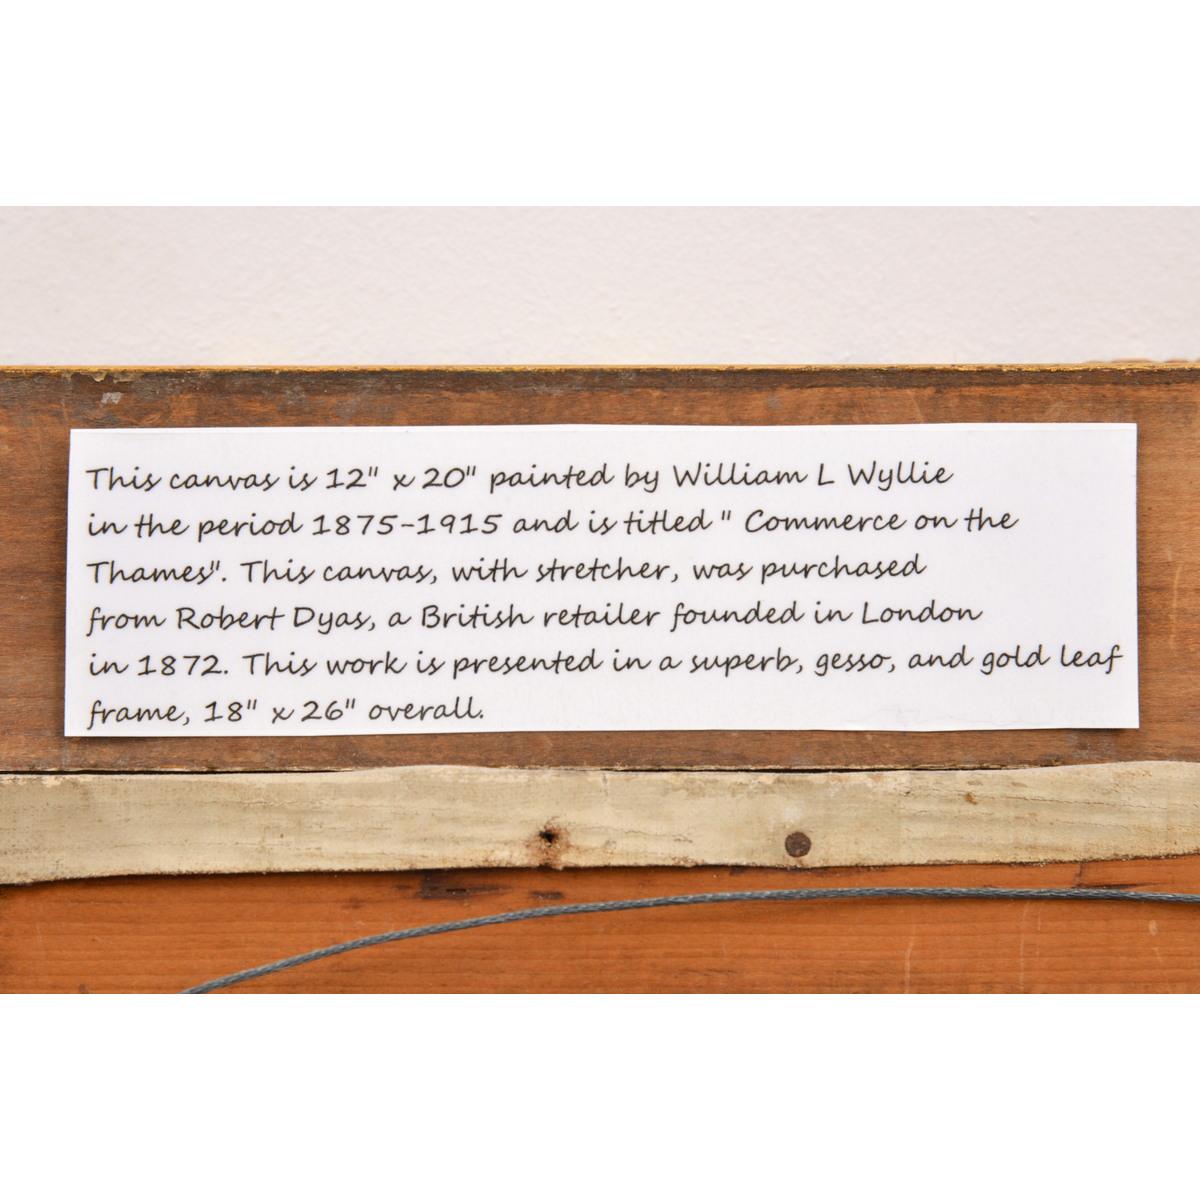 This canvas is 12" x 20" painted by William L Wyllie
in the period 1875-1915 and is titled " Commerce on the
Thames". This canvas, with stretcher, was purchased
from Robert Dyas, a British retailer founded in London
in 1872. This work is presented in a superb, gesso, and gold leaf
frame, 18" x 26" overall.